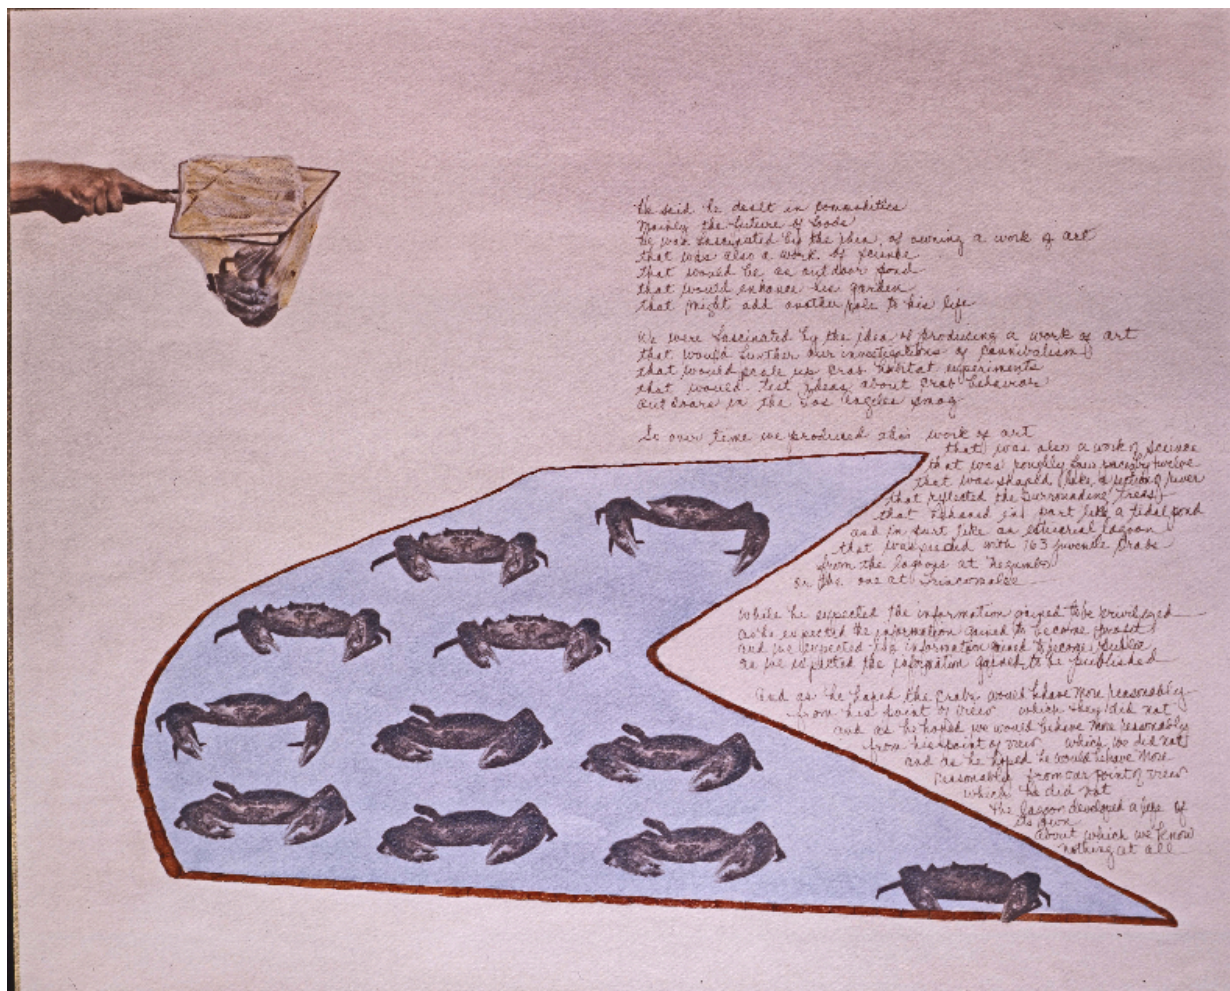 He said he dealt in commodities
Mainly the future of foods
He was fascinated by the idea of owning a work of art
that was also a work of science
that would be an outdoor pond
that would enhance his garden
that might add another role to his life
We were fascinated by the idea of producing a work of art
that would further our investigations of cannibalism
that would scale up crab habitat experiments
that would test ideas about crab behavior
outdoors in the Los Angeles smog
So over time we produced this work of art
that was also a work of science
that was roughly four by twelve
that was shaped like a river
that reflected the surrounding trees
that behaved in part like a tidal pond
and in part like an estuarial lagoon
that was seeded with 163 juvenile crabs
from the lagoons at Negumbo
or the one at Trincomalee
While he expected the information gained to be privileged
as he expected the information gained to become profit
and we expected the information gained to become public
as we expected the information gained to be published
And as he hoped the crabs would behave more reasonably
from his point of view which they did not
and as he hoped we would behave more reasonably
from his point of view which we did not
and as we hoped he would behave more
reasonably from our point of view
which he did not
the lagoon developed a life of
its own
about which we know
nothing at all